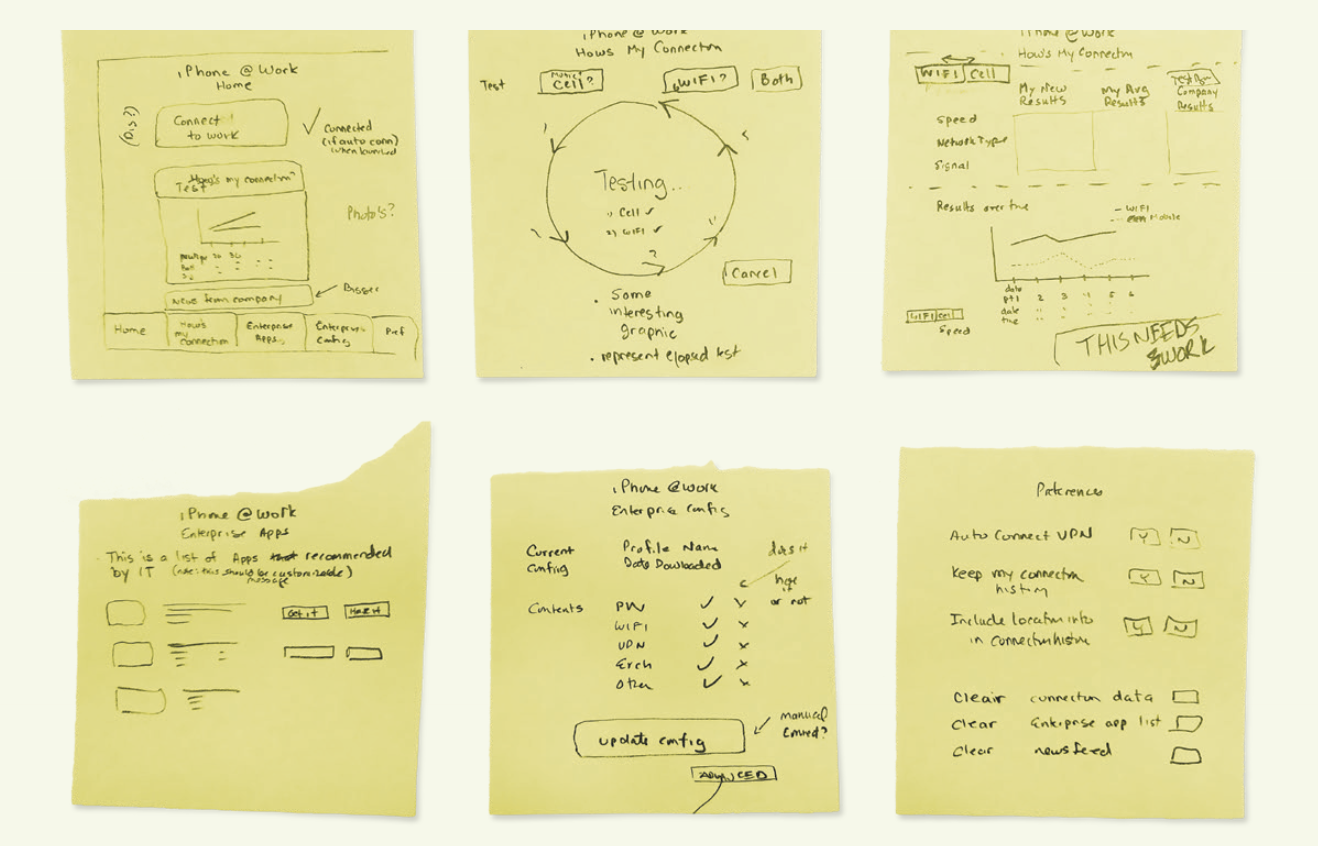 iPhone @ Work
Home
(Dis?)
Connect
to work
✓ Connected
(if auto conn)
when launched
How's my connection?
Test
Photo's?
News from company
Bigger
Home
How's
my
connection
Enterprise
Apps
Enterprise
Config
Pref
iPhone @ Work
Hows My Connectn
Test
Cell?
WIFI?
Both
Testing...
1) Cell ✓
2) WIFI ✓
Cancel
• Some
interesting
graphic
• represent elapsed test
iPhone @ Work
How's My Connectn
WIFI
Cell
My New
Results
My Avg
Results
Company
Results
Speed
Network Type
Signal
Results over time
– WIFI
Mobile
date
pt 1 2 3 4 5 6
date
time
WIFI
Cell
Speed
THIS NEEDS
WORK
iPhone @ Work
Enterprise Apps
This is a list of Apps that recommended
by IT (note: this should be customizable)
message
Get it
Have it
iPhone @ Work
Enterprise Config
Current
Config
Profile Name
Date Dowloaded
does it
have
it
or not
Contents
PW ✓
WIFI ✓ x
VPN ✓ x
Exch ✓ x
Other ✓ x
update config
manual
ADVANCED
Preferences
Auto Connect VPN Y N
Keep my connectn
history
Y N
Include location info
in connectn history
Y N
Clear connectn data
Clear Enterprise app list
Clear newsfeed